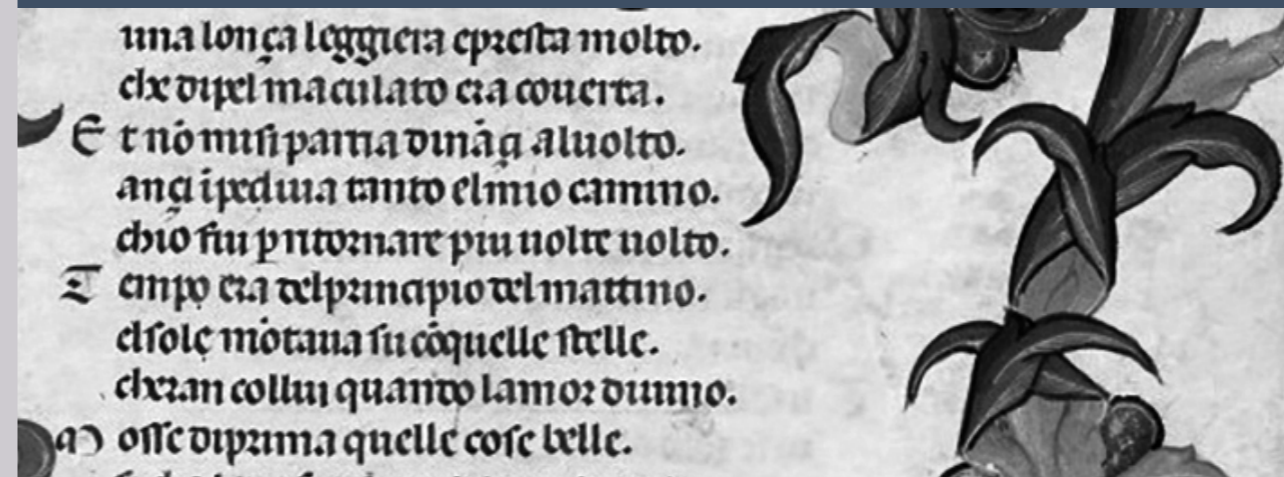 una lonça leggiera epresta molto.
che dipel maculato era couerta.
Et nō misi partia dināçi aluolto.
ançi īpediua tanto elmio camino.
chio fui p ritornare piu uolte uolto.
Tempo era delprincipio del mattino.
elsole mōtaua su cōquelle stelle.
cheran collui quando lamor diuino.
Mosse diprima quelle cose belle.